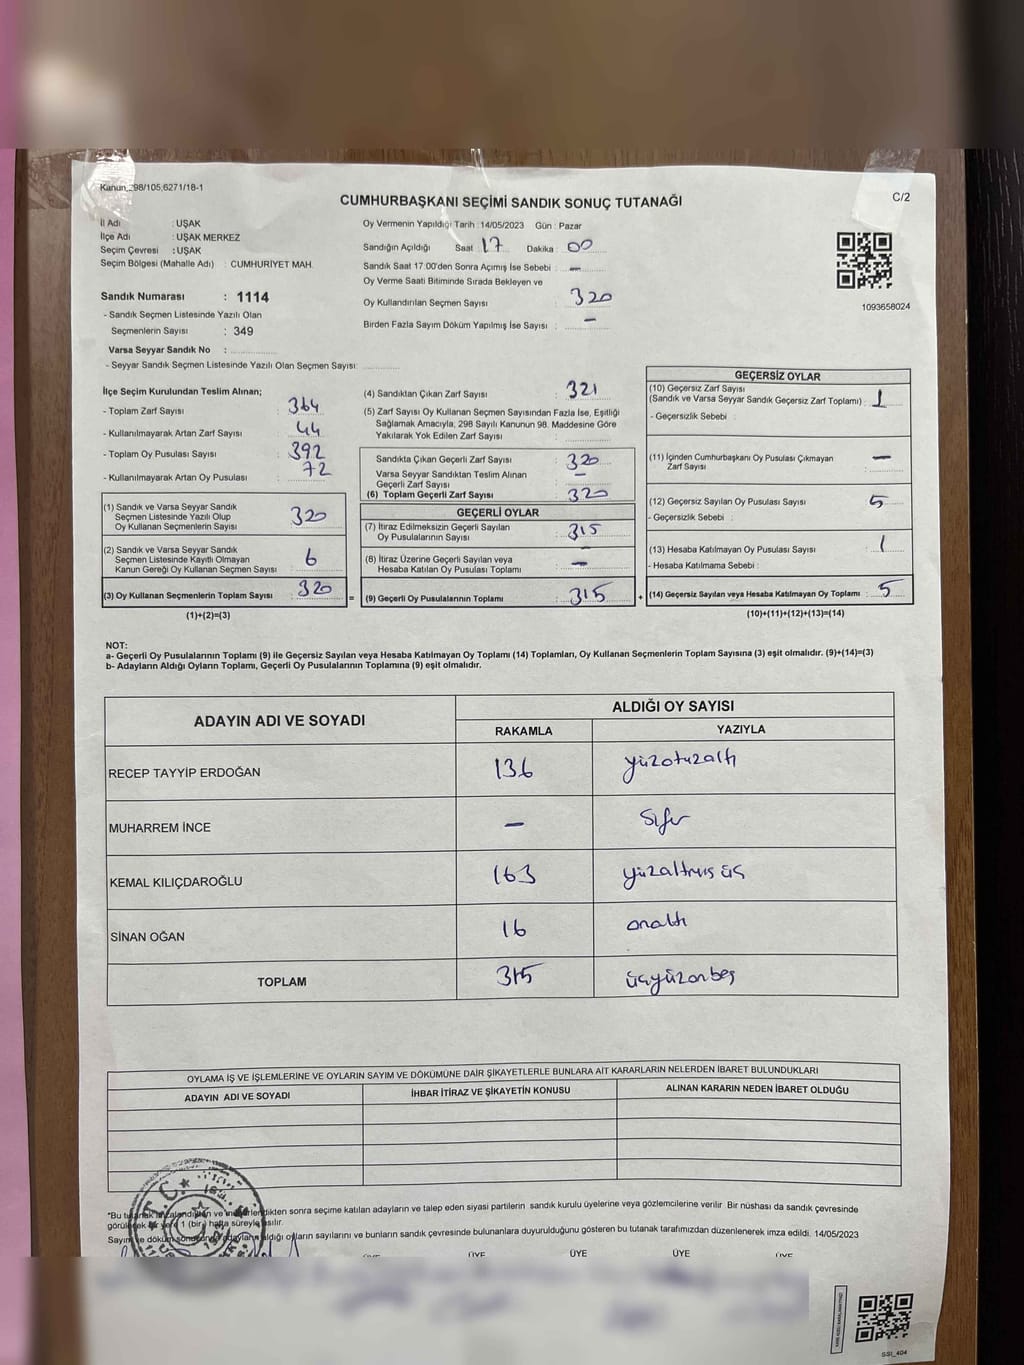 Kanun_298/105,6271/18-1
CUMHURBAŞKANI SEÇİMİ SANDIK SONUÇ TUTANAĞI
C/2
İl Adı : UŞAK
İlçe Adı : UŞAK MERKEZ
Seçim Çevresi : UŞAK
Seçim Bölgesi (Mahalle Adı) : CUMHURİYET MAH.
Sandık Numarası : 1114
- Sandık Seçmen Listesinde Yazılı Olan
Seçmenlerin Sayısı : 349
Varsa Seyyar Sandık No :
- Seyyar Sandık Seçmen Listesinde Yazılı Olan Seçmen Sayısı:
Oy Vermenin Yapıldığı Tarih : 14/05/2023 Gün : Pazar
Sandığın Açıldığı Saat 17 Dakika : 00
Sandık Saat 17:00'den Sonra Açımış İse Sebebi : —
Oy Verme Saati Bitiminde Sırada Bekleyen ve
Oy Kullandırılan Seçmen Sayısı : 320
Birden Fazla Sayım Döküm Yapılmış İse Sayısı : —
1093658024
İlçe Seçim Kurulundan Teslim Alınan;
- Toplam Zarf Sayısı : 364
- Kullanılmayarak Artan Zarf Sayısı : 44
- Toplam Oy Pusulası Sayısı : 392
- Kullanılmayarak Artan Oy Pusulası : 72
(1) Sandık ve Varsa Seyyar Sandık
Seçmen Listesinde Yazılı Olup
Oy Kullanan Seçmenlerin Sayısı : 320
(2) Sandık ve Varsa Seyyar Sandık
Seçmen Listesinde Kayıtlı Olmayan
Kanun Gereği Oy Kullanan Seçmen Sayısı : 6
(3) Oy Kullanan Seçmenlerin Toplam Sayısı : 320
(1)+(2)=(3)
(4) Sandıktan Çıkan Zarf Sayısı : 321
(5) Zarf Sayısı Oy Kullanan Seçmen Sayısından Fazla İse, Eşitliği
Sağlamak Amacıyla, 298 Sayılı Kanunun 98. Maddesine Göre
Yakılarak Yok Edilen Zarf Sayısı :
Sandıkta Çıkan Geçerli Zarf Sayısı : 320
Varsa Seyyar Sandıktan Teslim Alınan
Geçerli Zarf Sayısı : —
(6) Toplam Geçerli Zarf Sayısı : 320
GEÇERLİ OYLAR
(7) İtiraz Edilmeksizin Geçerli Sayılan
Oy Pusulalarının Sayısı : 315
(8) İtiraz Üzerine Geçerli Sayılan veya
Hesaba Katılan Oy Pusulası Toplamı : —
= (9) Geçerli Oy Pusulalarının Toplamı : 315
GEÇERSİZ OYLAR
(10) Geçersiz Zarf Sayısı
(Sandık ve Varsa Seyyar Sandık Geçersiz Zarf Toplamı) : 1
- Geçersizlik Sebebi :
(11) İçinden Cumhurbaşkanı Oy Pusulası Çıkmayan
Zarf Sayısı : —
(12) Geçersiz Sayılan Oy Pusulası Sayısı : 5
- Geçersizlik Sebebi :
(13) Hesaba Katılmayan Oy Pusulası Sayısı : 1
- Hesaba Katılmama Sebebi :
+ (14) Geçersiz Sayılan veya Hesaba Katılmayan Oy Toplamı : 5
(10)+(11)+(12)+(13)=(14)
NOT:
a- Geçerli Oy Pusulalarının Toplamı (9) ile Geçersiz Sayılan veya Hesaba Katılmayan Oy Toplamı (14) Toplamları, Oy Kullanan Seçmenlerin Toplam Sayısına (3) eşit olmalıdır. (9)+(14)=(3)
b- Adayların Aldığı Oyların Toplamı, Geçerli Oy Pusulalarının Toplamına (9) eşit olmalıdır.
ADAYIN ADI VE SOYADI ALDIĞI OY SAYISI
RAKAMLA YAZIYLA
RECEP TAYYİP ERDOĞAN 136 yüzotuzaltı
MUHARREM İNCE — Sıfır
KEMAL KILIÇDAROĞLU 163 yüzaltmış üç
SİNAN OĞAN 16 onaltı
TOPLAM 315 üçyüzonbeş
OYLAMA İŞ VE İŞLEMLERİNE VE OYLARIN SAYIM VE DÖKÜMÜNE DAİR ŞİKAYETLERLE BUNLARA AİT KARARLARIN NELERDEN İBARET BULUNDUKLARI
ADAYIN ADI VE SOYADI İHBAR İTİRAZ VE ŞİKAYETİN KONUSU ALINAN KARARIN NEDEN İBARET OLDUĞU
*Bu tutanak imzalandıktan ve mühürlendikten sonra seçime katılan adayların ve talep eden siyasi partilerin sandık kurulu üyelerine veya gözlemcilerine verilir. Bir nüshası da sandık çevresinde
görülecek bir yere 1 (bir) hafta süreyle asılır.
Sayım ve döküm sonucunda adayların aldığı oyların sayılarını ve bunların sandık çevresinde bulunanlara duyurulduğunu gösteren bu tutanak tarafımızdan düzenlenerek imza edildi. 14/05/2023
ÜYE ÜYE ÜYE ÜYE ÜYE
T.C.
SSI_404